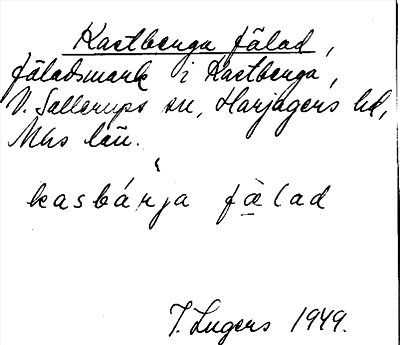 Kastberga fälad,
fäladsmark i Kastberga,
V. Sallerups sn, Harjagers hd,
Mhs län.
kasbárja fälad
T. Lugers 1949.